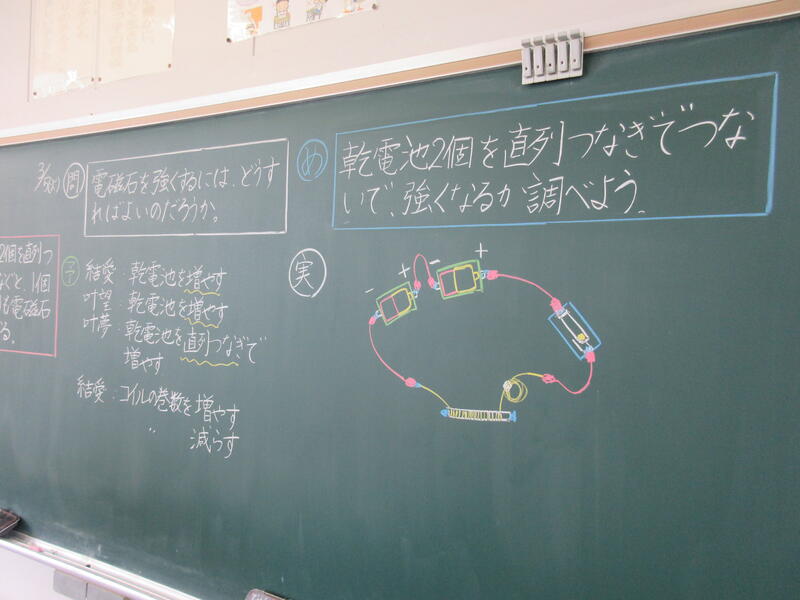 問
電磁石を強くするには、どうす
ればよいのだろうか。
予
結愛:乾電池を増やす
叶望:乾電池を増やす
叶夢:乾電池を直列つなぎで
増やす
結愛:コイルの巻数を増やす
〃 減らす
2個を直列つ
なぐと、1個
も電磁石
る。
め
乾電池2個を直列つなぎでつな
いで、強くなるか調べよう。
実
- + - +